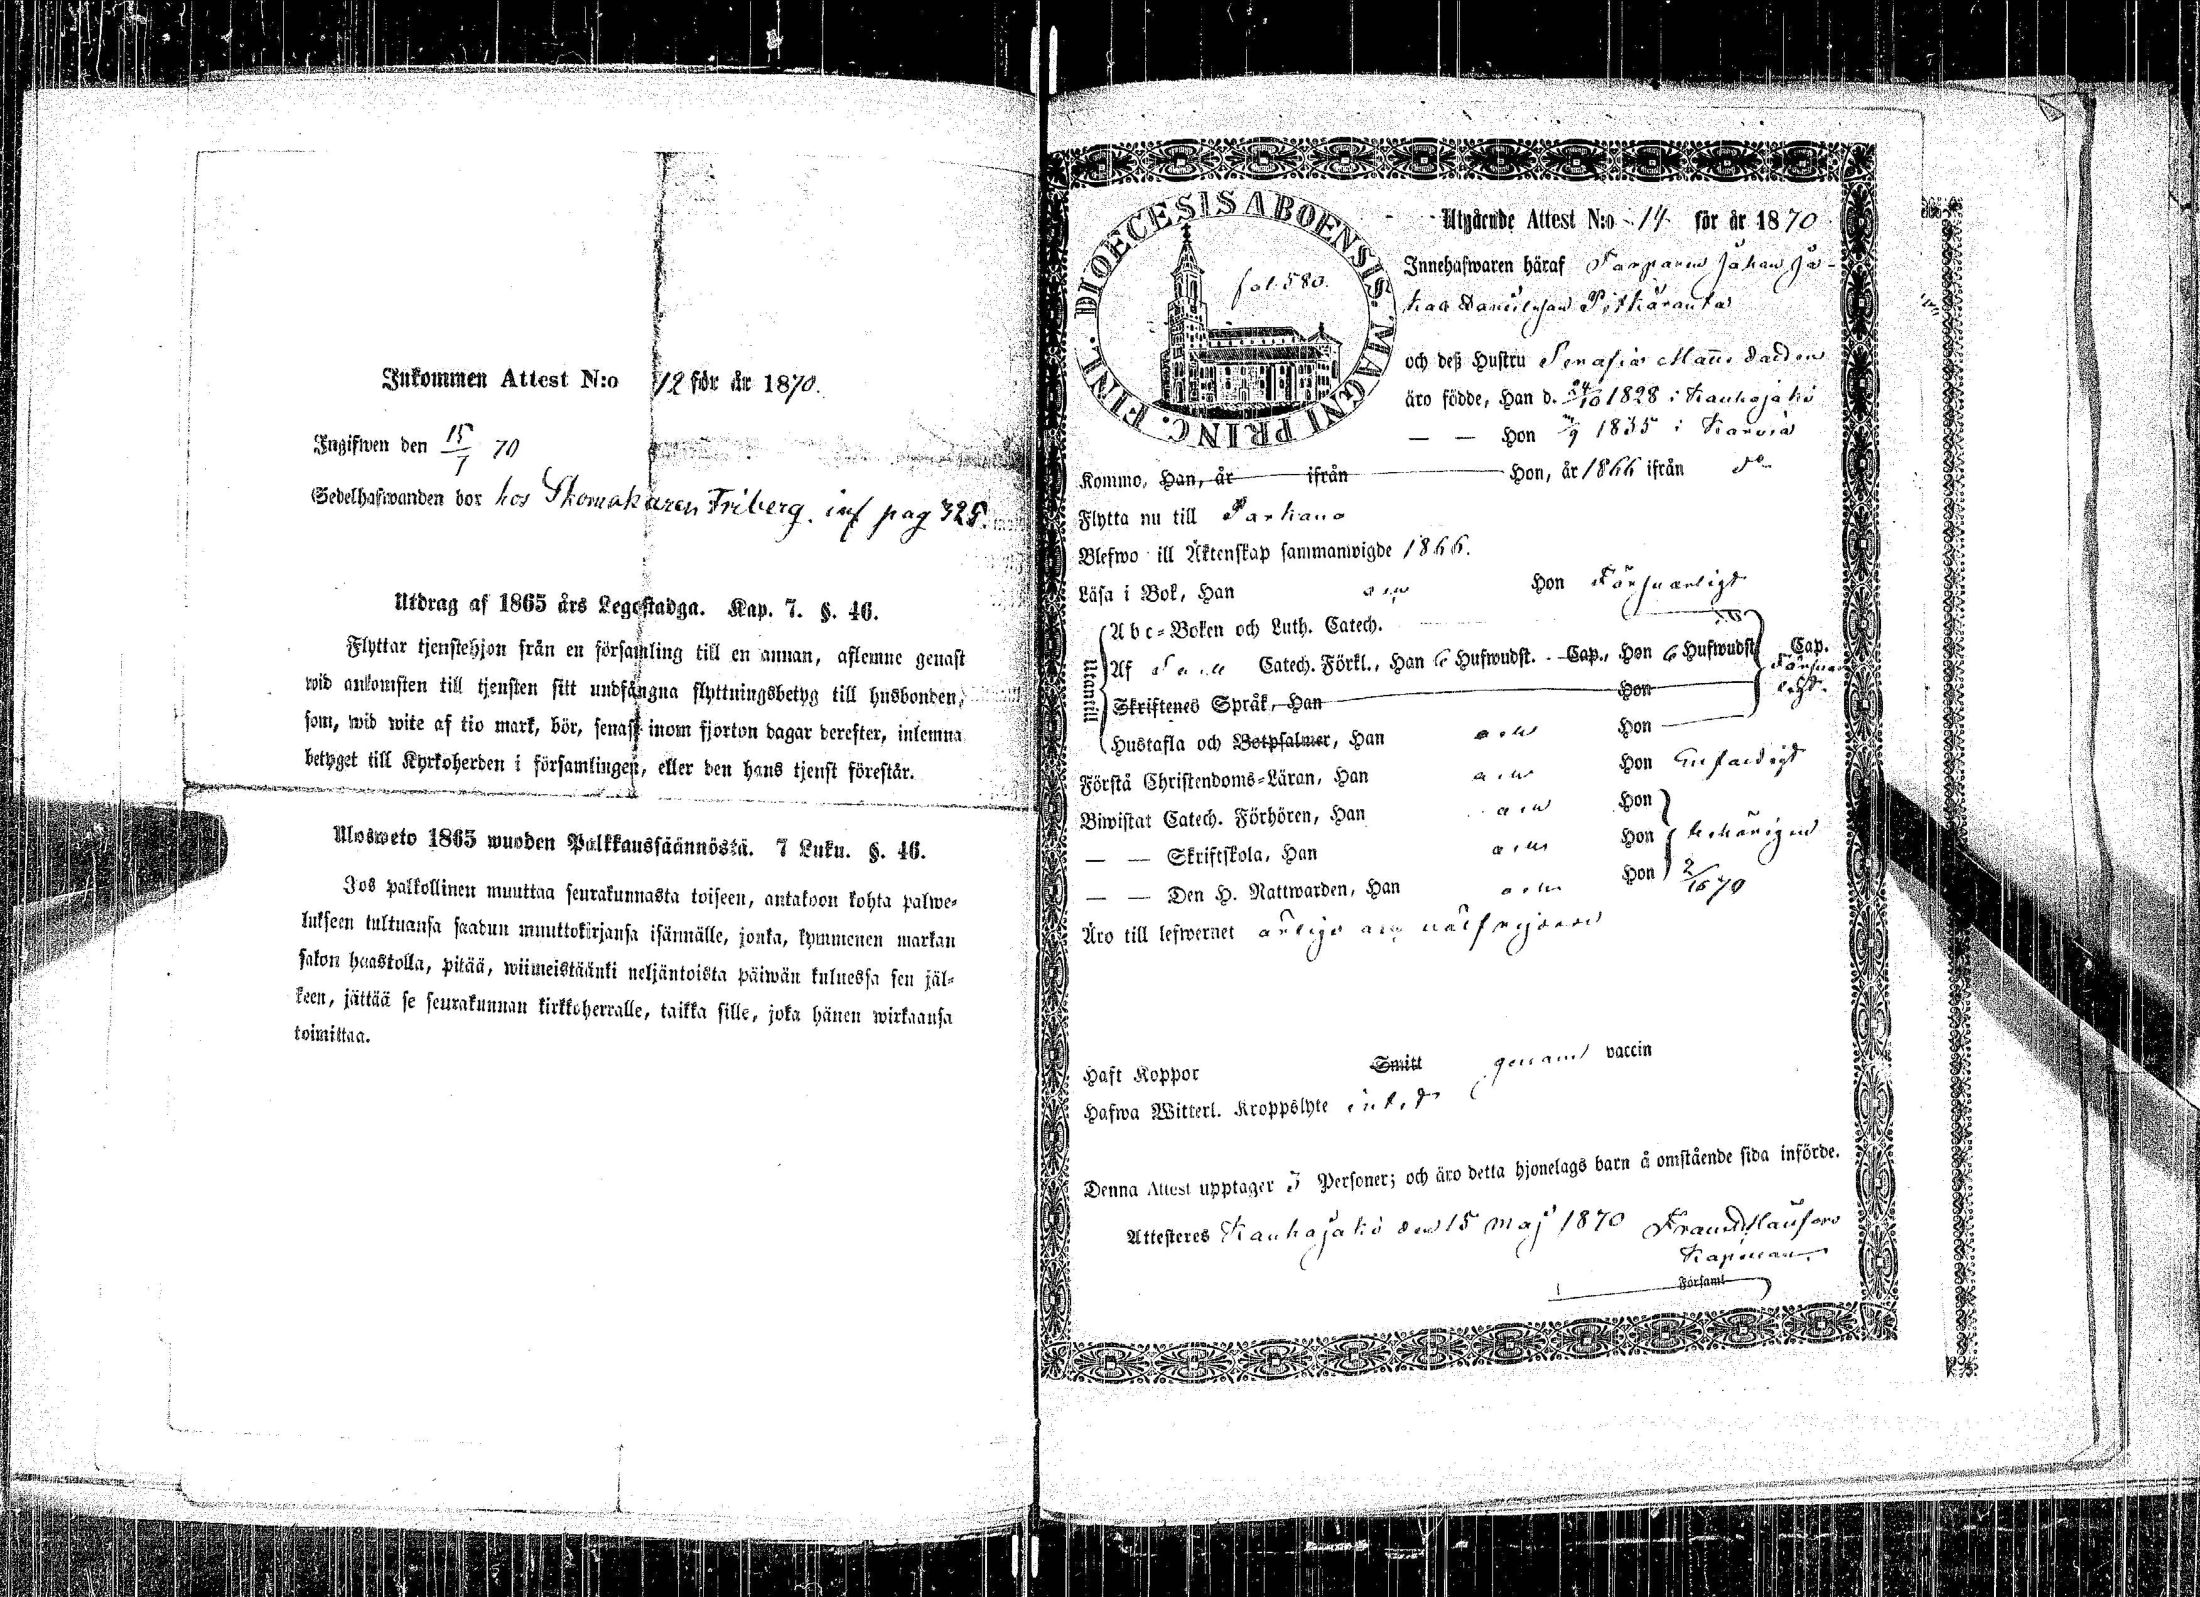 Inkommen Attest N:o 12 för år 1870.
Ingifwen den 15/7 70
Sedelhafwanden bor hos Skomakaren Friberg. inf pag 325.
Utdrag af 1865 års Legostadga. Kap. 7. §. 46.
Flyttar tjenstehjon från en församling till en annan, aflemne genast
wid ankomsten till tjensten sitt undfångna flyttningsbetyg till husbonden,
som, wid wite af tio mark, bör, senast inom fjorton dagar derefter, inlemna
betyget till Kyrkoherden i församlingen, eller den hans tjenst förestår.
Ulosweto 1865 wuoden Palkkaussäännöstä. 7 Luku. §. 46.
Jos palkollinen muuttaa seurakunnasta toiseen, antakoon kohta palwe-
lukseen tultuansa saadun muuttokirjansa isännälle, jonka, kymmenen markan
sakon haastolla, pitää, wiimeistäänki neljäntoista päiwän kuluessa sen jäl-
keen, jättää se seurakunnan kirkkoherralle, taikka sille, joka hänen wirkaansa
toimittaa.
DIOECESIS ABOENSIS. MAGNI PRINC. FINL.
fol. 580.
Utgående Attest N:o 14 för år 1870
Innehafwaren häraf Torparen Johan Ja-
kob Danielsson Pitkäranta
och deß Hustru Serafia Manne
äro födde, Han d. 24/10 1828 i Kauhajoki
— — Hon /9 1835 i Karvia
Kommo, Han, år ifrån Hon, år 1866 ifrån do
Flytta nu till Parkano
Blefwo till Äktenskap sammanwigde 1866.
Läsa i Bok, Han Hon Försvarligt
Utantill
Abc-Boken och Luth. Catech.
Af Catech. Förkl., Han 6 Hufwudst. Cap., Hon 6 Hufwudst. Cap.
Skriftenes Språk, Han Hon
Hustafla och Botpsalmer, Han Hon
Förstå Christendoms-Läran, Han Hon Enfaldigt
Biwistat Catech. Förhören, Han Hon
— — Skriftskola, Han Hon behörigen
— — Den H. Nattwarden, Han Hon 2/10 70
Äro till lefwernet ärliga och
Haft Koppor Smitt genom vaccin
Hafwa Witterl. Kroppslyte intet
Denna Attest upptager 3 Personer; och äro detta hjonelags barn å omstående sida införde.
Attesteres Kauhajoki den 15 Maj 1870
Kapellan
Församl